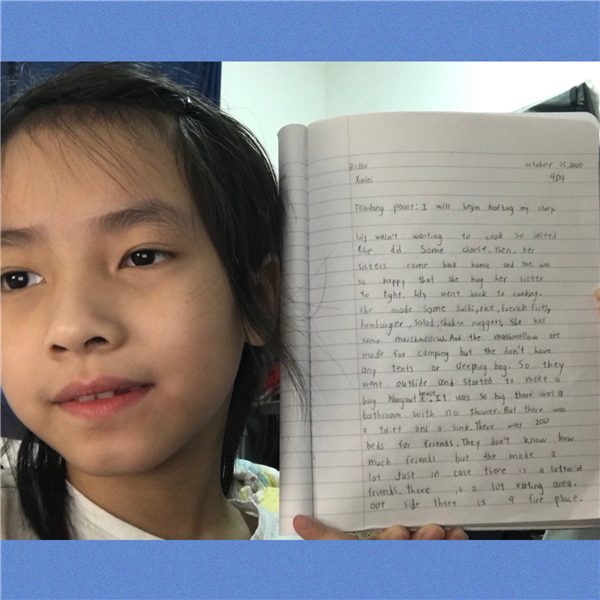 october 15, 2020
Xinlei 404
Teaching point: I will begin drafting my story.
lily wasn't wanting to cook so insted
She did some chorse. Then, her
sisters came back home and she was
so happy that she hug her sister
to tight. lily went back to cooking.
she made some sushi, rice, french fries,
hamburger, salad, chicken nuggets, She has
some marshmellows. And the mashmellow are
made for camping but the don't have
any tents or sleeping bag. So they
went outside and started to make a
hug house. It was so big there was a
bathroom with no shower. But there was
a toilet and a sink. There was 200
beds for friends. They don't know how
much friends but the made a
lot Just in case there is a lotta
friends. there is a lot eating area.
out side there is a fire place.